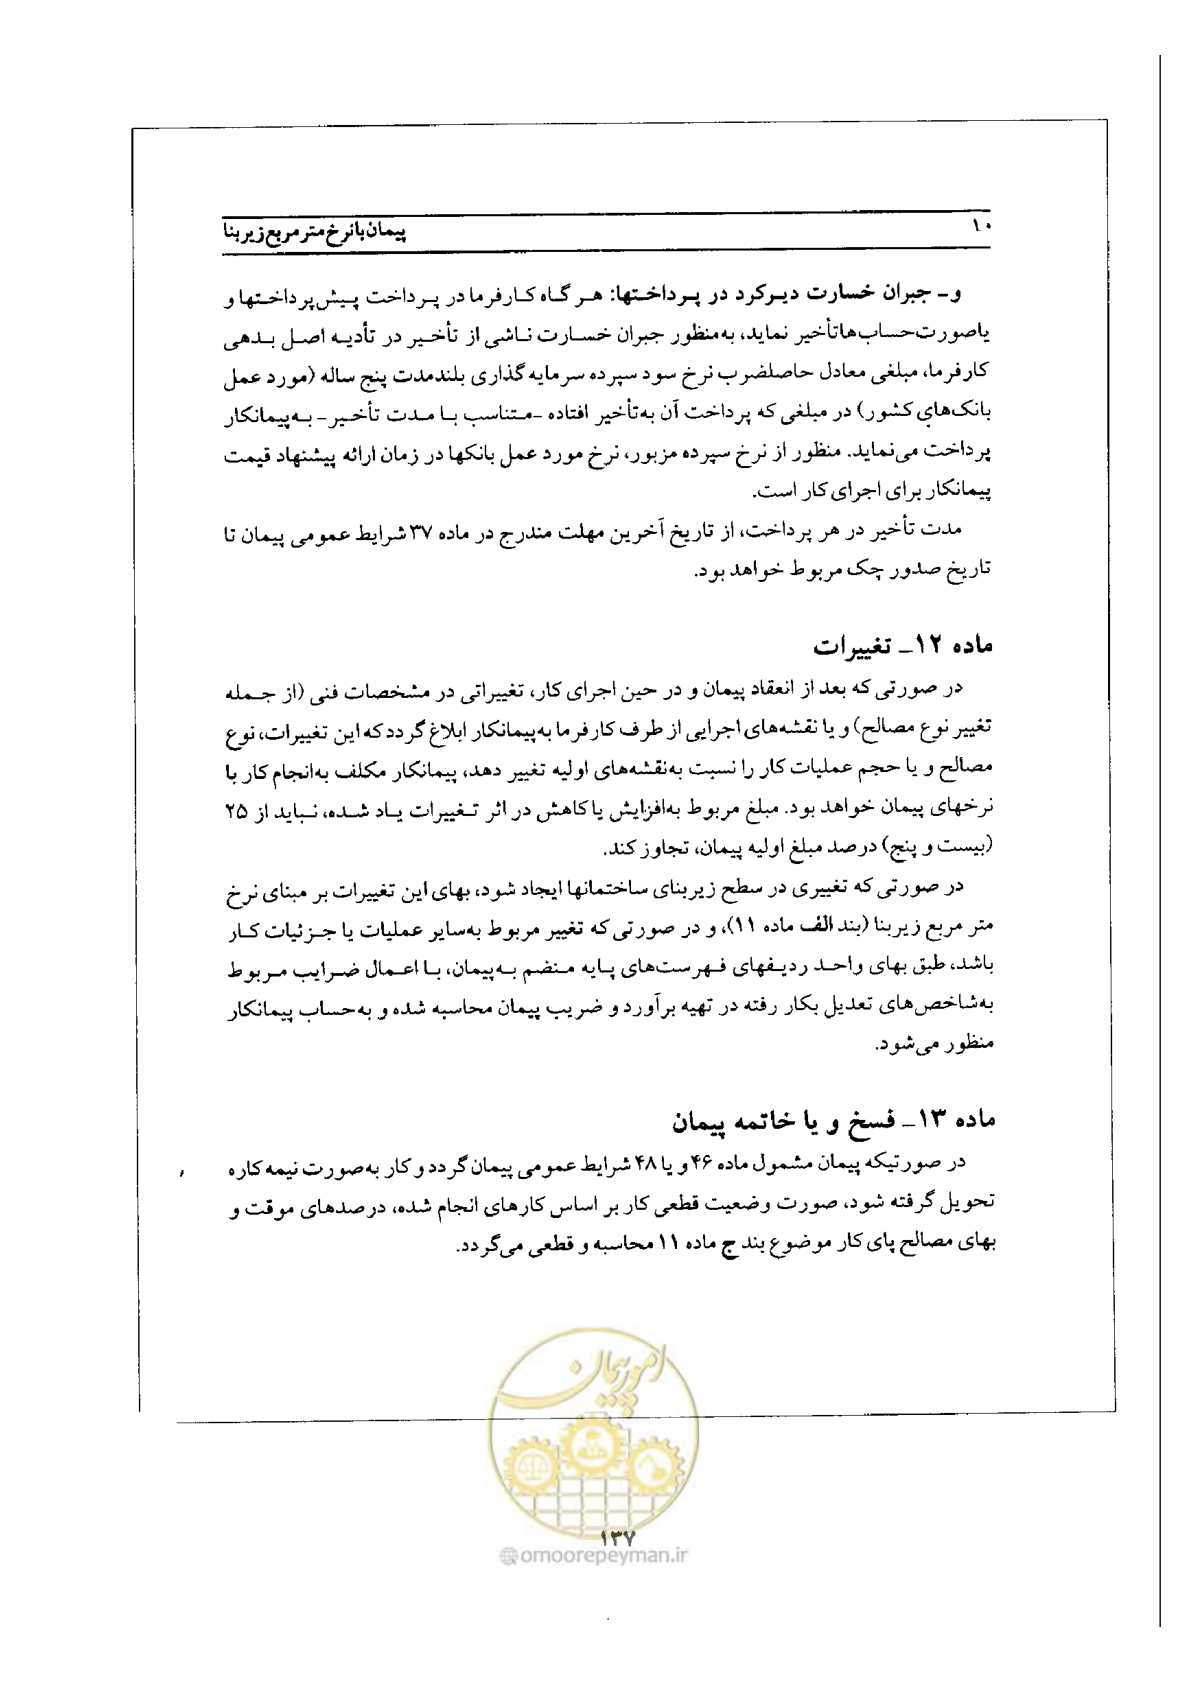 ۱۰
پیمان با نرخ متر مربع زیربنا
و- جبران خسارت دیرکرد در پرداختها: هر گاه کارفرما در پرداخت پیش‌پرداختها و
یا صورت‌حساب‌ها تأخیر نماید، به‌منظور جبران خسارت ناشی از تأخیر در تأدیه اصل بدهی
کارفرما، مبلغی معادل حاصلضرب نرخ سود سپرده سرمایه گذاری بلندمدت پنج ساله (مورد عمل
بانک‌های کشور) در مبلغی که پرداخت آن به‌تأخیر افتاده -متناسب با مدت تأخیر- به‌پیمانکار
پرداخت می‌نماید. منظور از نرخ سپرده مزبور، نرخ مورد عمل بانکها در زمان ارائه پیشنهاد قیمت
پیمانکار برای اجرای کار است.
مدت تأخیر در هر پرداخت، از تاریخ آخرین مهلت مندرج در ماده ۳۷ شرایط عمومی پیمان تا
تاریخ صدور چک مربوط خواهد بود.
ماده ۱۲- تغییرات
در صورتی که بعد از انعقاد پیمان و در حین اجرای کار، تغییراتی در مشخصات فنی (از جمله
تغییر نوع مصالح) و یا نقشه‌های اجرایی از طرف کارفرما به‌پیمانکار ابلاغ گردد که این تغییرات، نوع
مصالح و یا حجم عملیات کار را نسبت به‌نقشه‌های اولیه تغییر دهد، پیمانکار مکلف به‌انجام کار با
نرخهای پیمان خواهد بود. مبلغ مربوط به‌افزایش یا کاهش در اثر تغییرات یاد شده، نباید از ۲۵
(بیست و پنج) درصد مبلغ اولیه پیمان، تجاوز کند.
در صورتی که تغییری در سطح زیربنای ساختمانها ایجاد شود، بهای این تغییرات بر مبنای نرخ
متر مربع زیربنا (بند الف ماده ۱۱)، و در صورتی که تغییر مربوط به‌سایر عملیات یا جزئیات کار
باشد، طبق بهای واحد ردیفهای فهرست‌های پایه منضم به‌پیمان، با اعمال ضرایب مربوط
به‌شاخص‌های تعدیل بکار رفته در تهیه برآورد و ضریب پیمان محاسبه شده و به‌حساب پیمانکار
منظور می‌شود.
ماده ۱۳- فسخ و یا خاتمه پیمان
در صورتیکه پیمان مشمول ماده ۴۶ و یا ۴۸ شرایط عمومی پیمان گردد و کار به‌صورت نیمه کاره
تحویل گرفته شود، صورت وضعیت قطعی کار بر اساس کارهای انجام شده، درصدهای موقت و
بهای مصالح پای کار موضوع بند ج ماده ۱۱ محاسبه و قطعی می‌گردد.
امور پیمان
۱۳۷
@omoorepeyman.ir